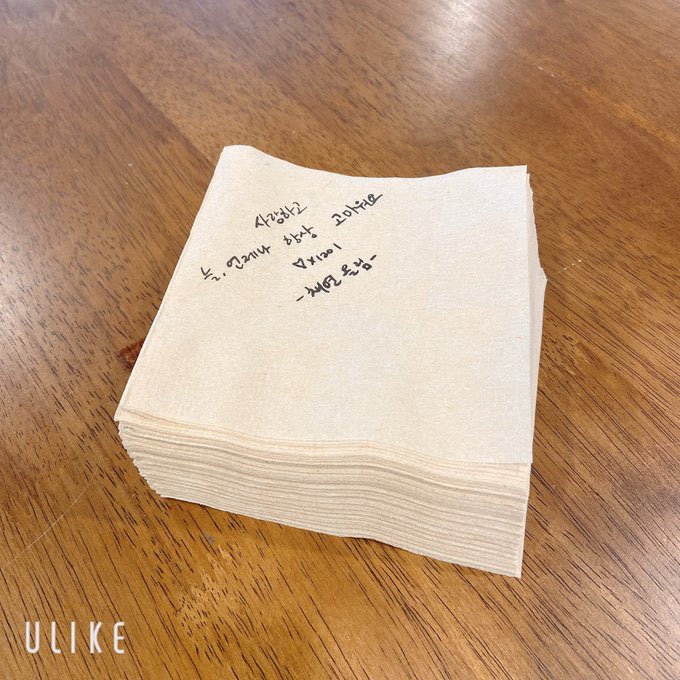 사랑하고
늘, 언제나 항상 고마워요
♡×1201
-채연 올림-
ULIKE